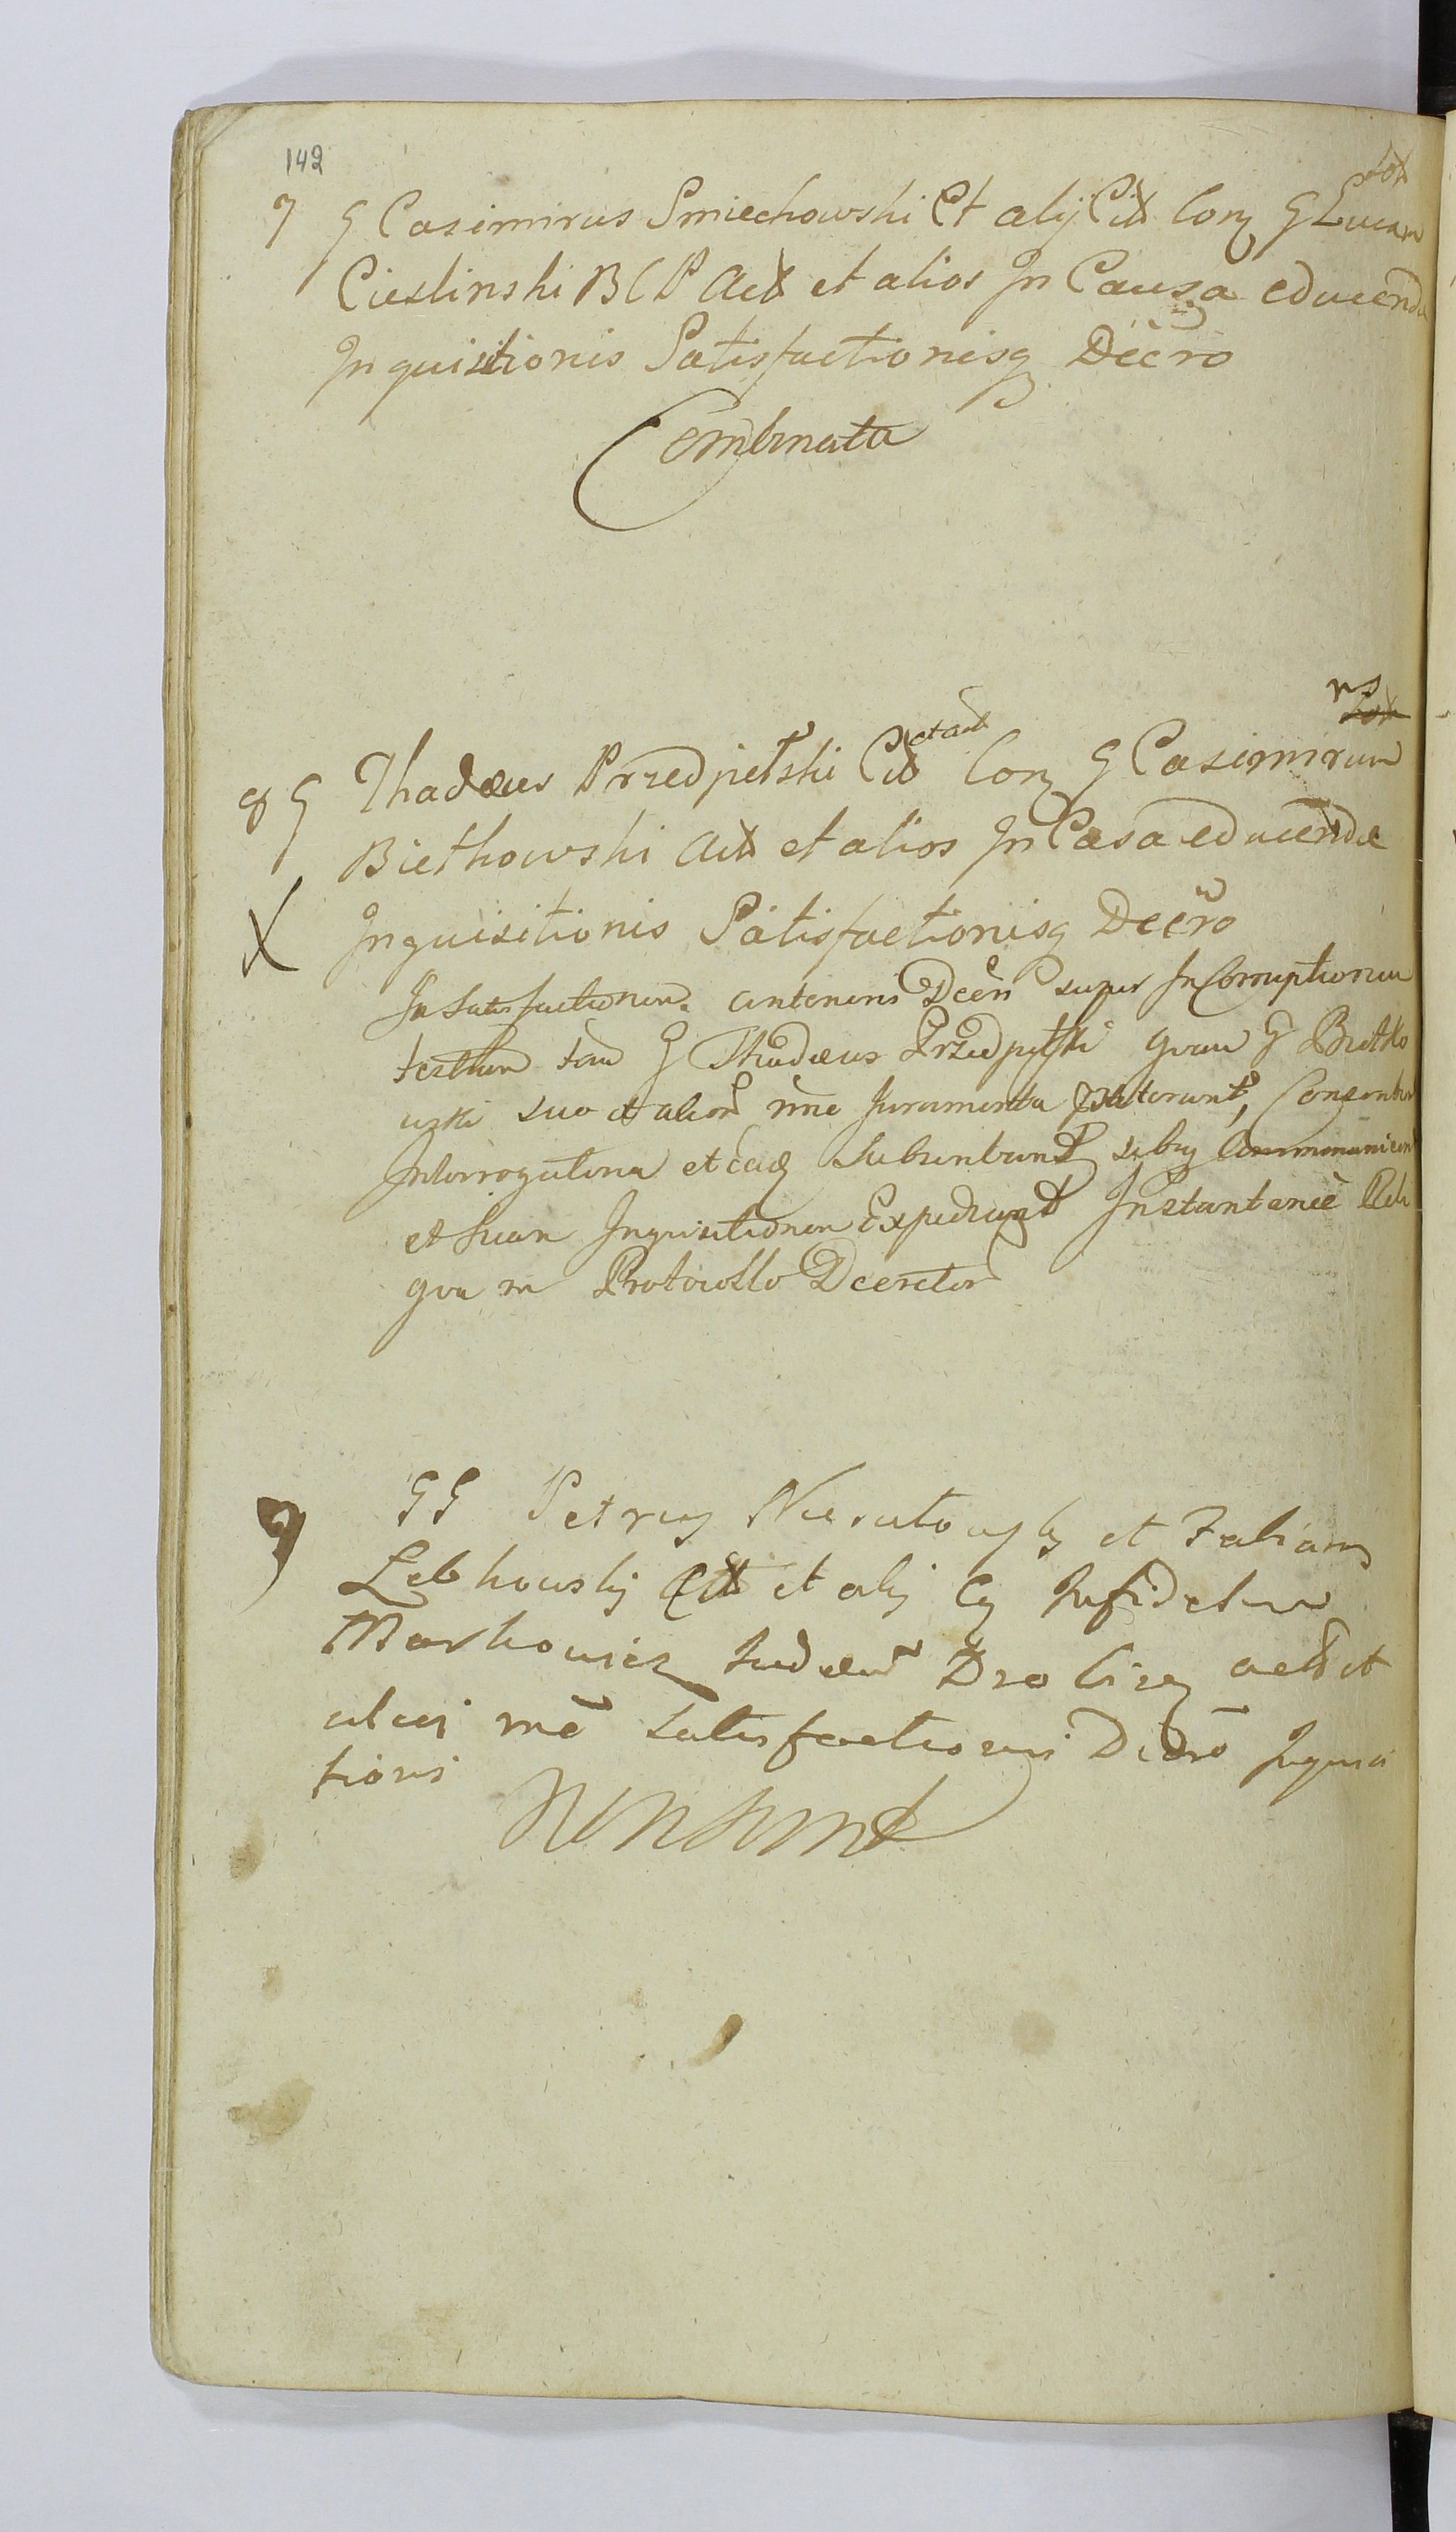 142
7 G Casimirus Smiechowski Et alij Citt Con G Lucam
Cieslinski B C P Act et alios In Causa educenda
Inquisitionis Satisfactionisq Decro
Combinata
ns
8 G Thadæus Przedpełski Cit et act Con G Casimirum
Biethowski Act et alios In Casa educendæ
X Inquisitionis Satisfactionisq Decro
In Satisfactionem antenris Decri super InCorruptionem
testium tam G Thadæus Przedpełski quam G Bietko
wski suo et alior nne Juramenta
Interrogatoria et eaq subsentiand sibiq Communicent
et suam Inquisitionem Expediant Instantanie
qua in Protocollo Decretor
9 GG Petrus et Fabianus
Lebkowski Citt et alij Cq Infidelem
Markowicz Judæum act et
alios me satisfactionis Decro Inquisi
tionis
Non sunt